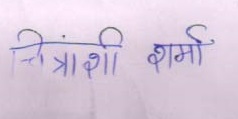 चित्रांशी शर्मा